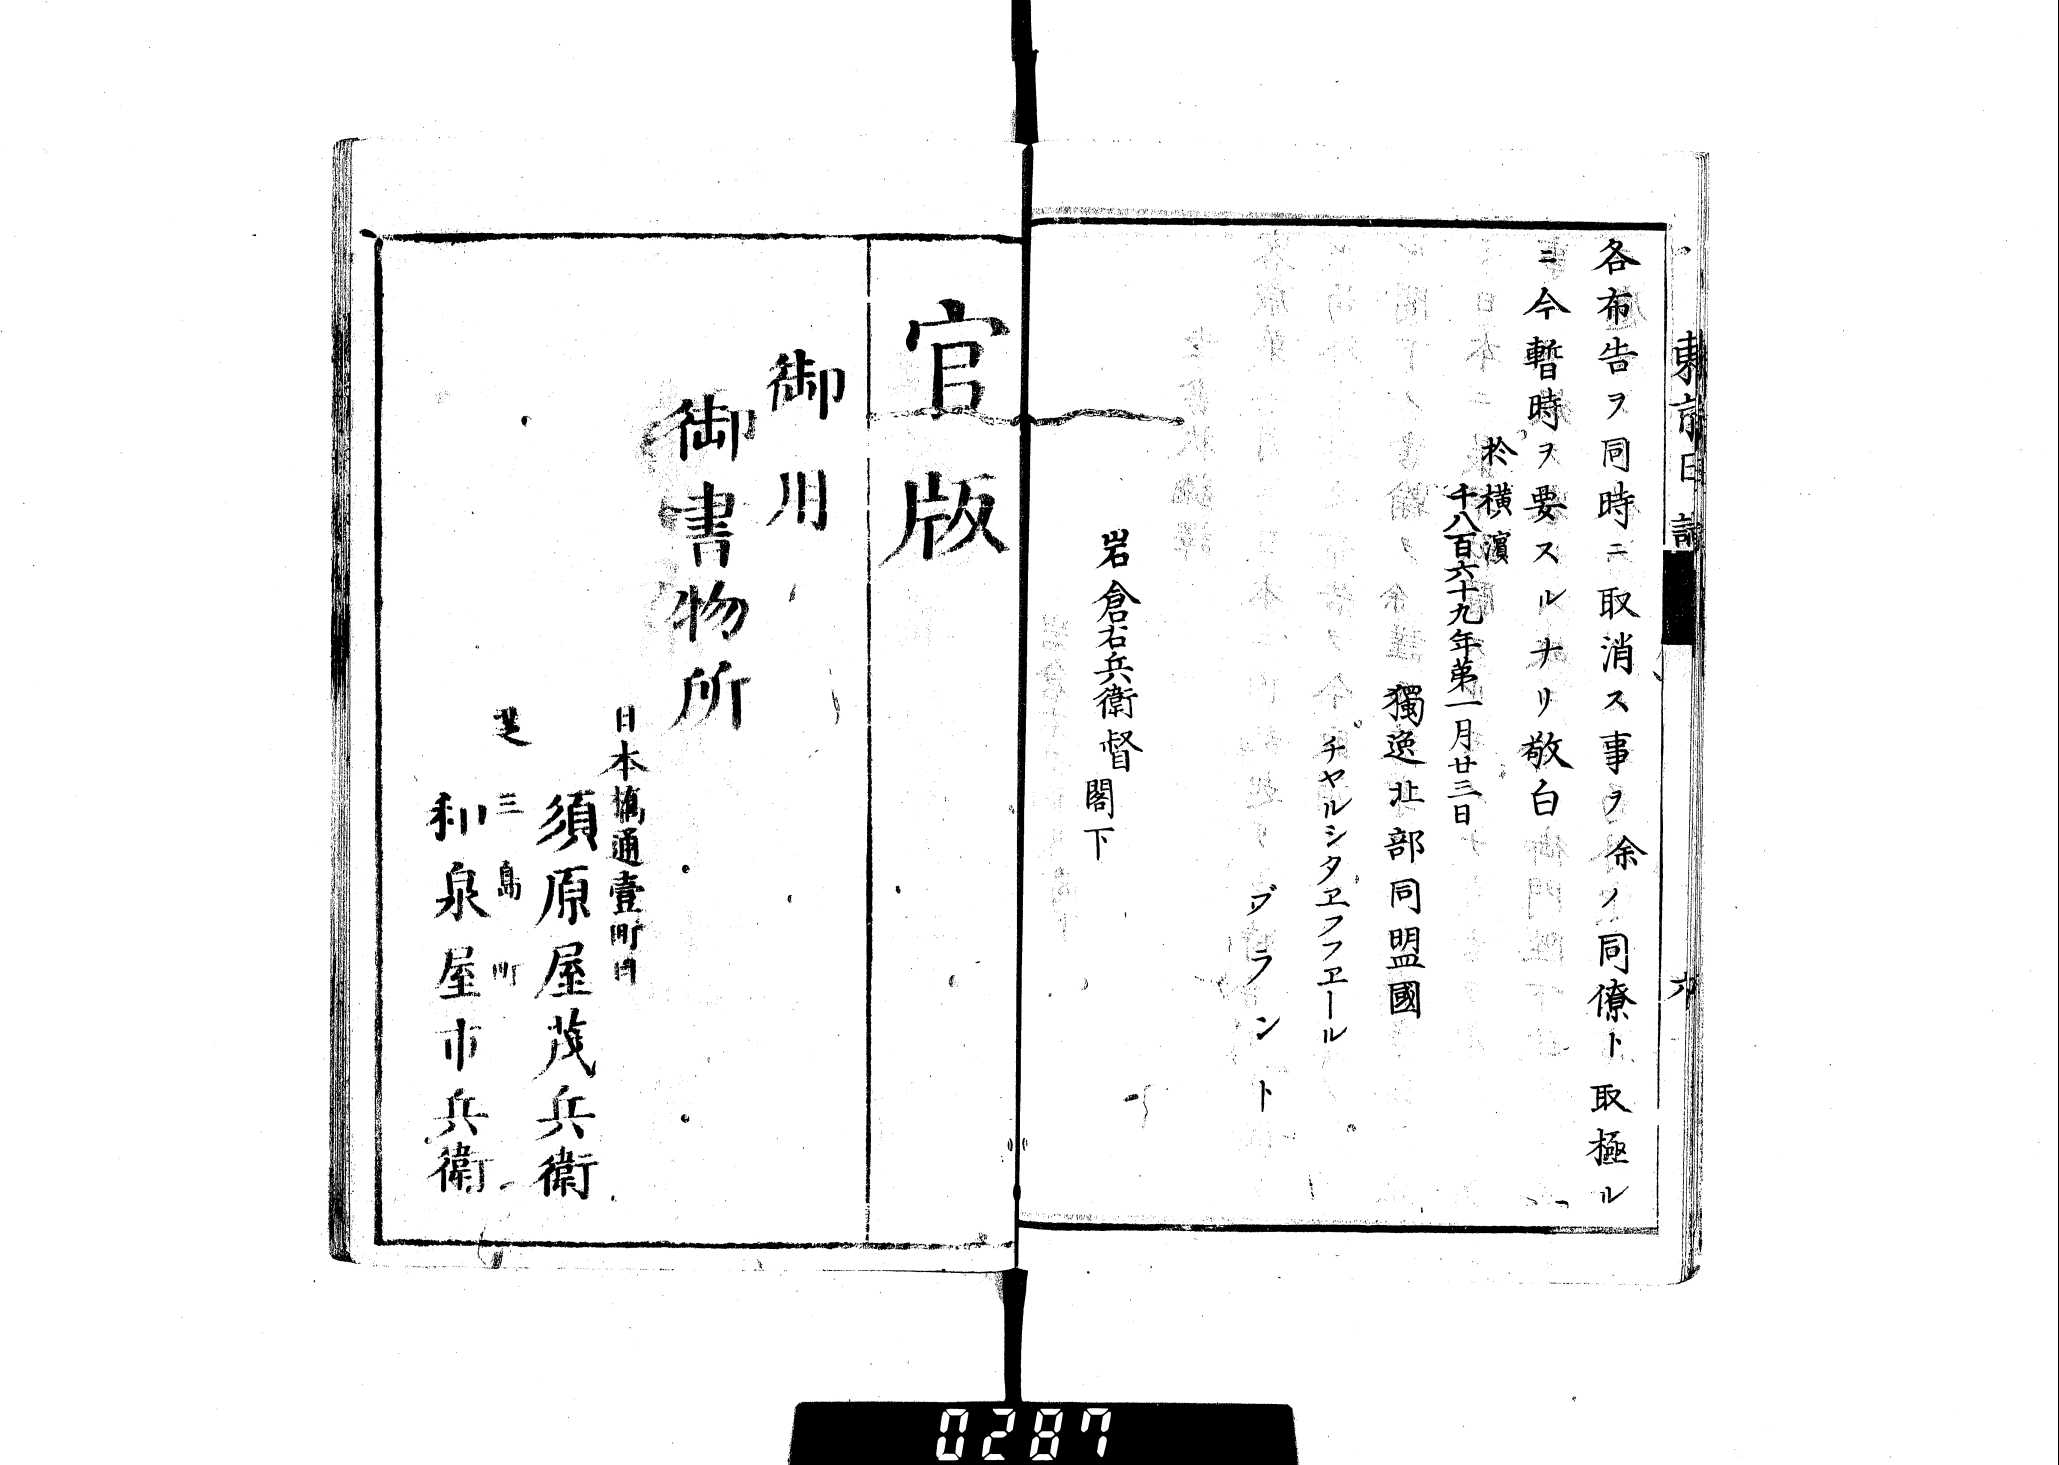 東京日誌
六
各布告ヲ同時ニ取消ス事ヲ余ノ同僚ト取極ル
ニ今暫時ヲ要スルナリ敬白
於横濱
千八百六十九年第一月廿三日
獨逸北部同盟國
チヤルシタヱフフヱール
ブラント
岩倉右兵衛督
閣下
官版
御用
御書物所
日本橋通壹町目
須原屋茂兵衛
芝三島町
和泉屋市兵衛
0287